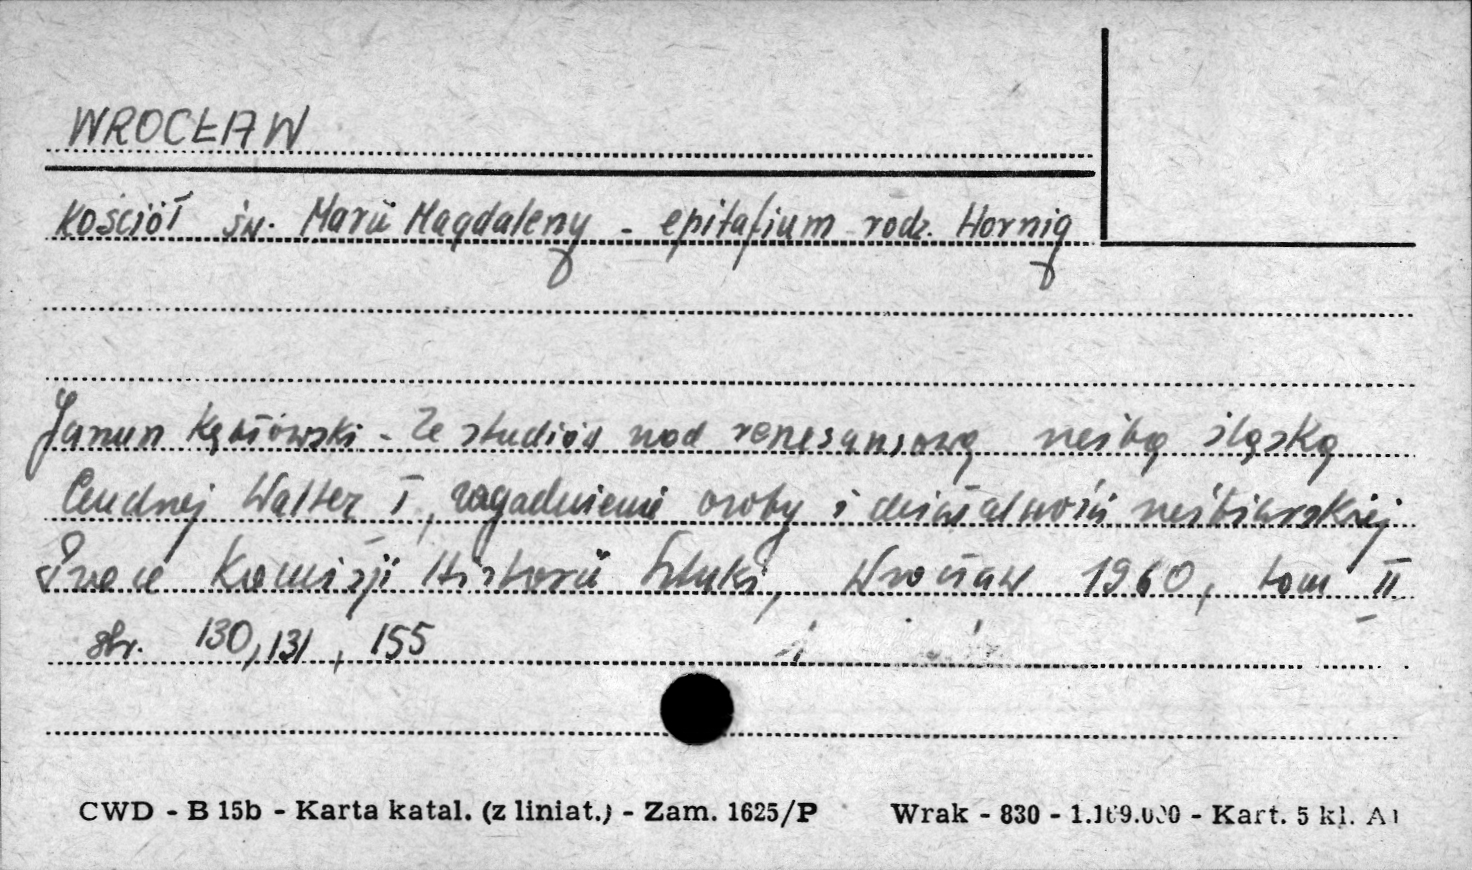 WROCŁAW
Kościół św. Marii Magdaleny - epitafium rodz. Hornig
Janusz Kębłowski - Ze studiów nad renesansową rzeźbą śląską
Andrzej Walter I, zagadnienie osoby i działalności rzeźbiarskiej
Prace Komisji Historii Sztuki, Wrocław 1960, tom II
str. 130, 131, 155
CWD - B 15b - Karta katal. (z liniat.) - Zam. 1625/P Wrak - 830 - 1.169.000 - Kart. 5 kl. A1